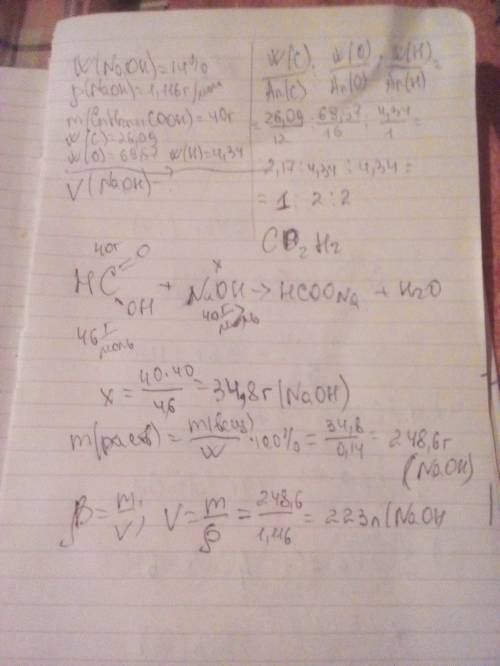 W(NaOH)=14%
ρ(NaOH)=1,116г/моль
m(CnH2n+1COOH)=40г
W(C)=26,09
W(O)=69,57 W(H)=4,34
V(NaOH)-?
W(C)/Ar(C) : W(O)/Ar(O) : W(H)/Ar(H) =
= 26,09/12 : 69,57/16 : 4,34/1 =
2,17 : 4,34 : 4,34 =
= 1 : 2 : 2
CO2H2
40г x
HC=O OH + NaOH → HCOONa + H2O
46 г/моль 40 г/моль
x = 40·40/46 = 34,8г (NaOH)
m(раств) = m(вещ)/W · 100% = 34,8/0,14 = 248,6г
(NaOH)
ρ = m/V; V = m/ρ = 248,6/1,116 = 223л (NaOH